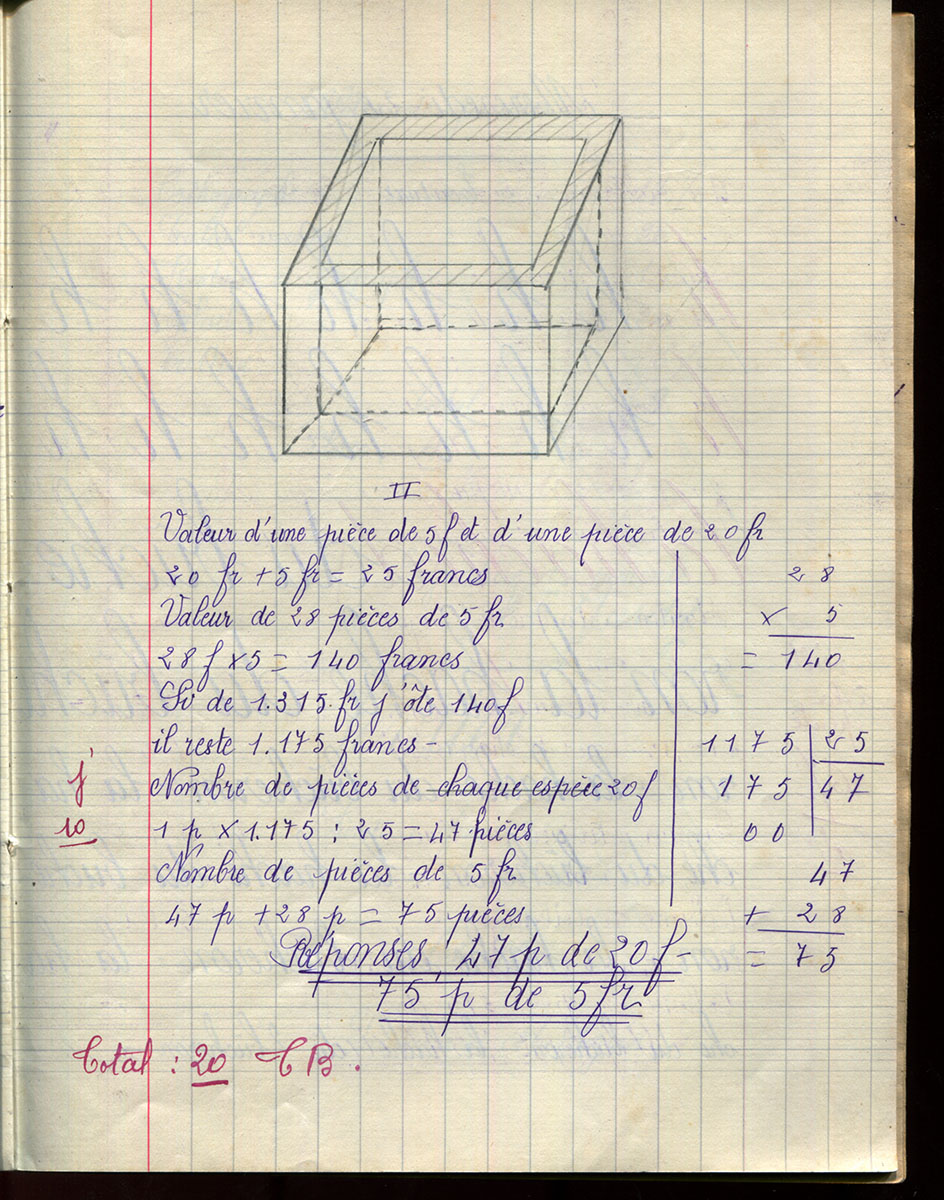 II
Valeur d'une pièce de 5f et d'une pièce de 20 fr
20 fr + 5 fr = 25 francs
Valeur de 28 pièces de 5 fr
28 f × 5 = 140 francs
Si de 1.315 fr j'ôte 140 f
il reste 1.175 francs -
Nombre de pièces de chaque espèce 20f
1 p × 1.175 : 25 = 47 pièces
Nombre de pièces de 5 fr
47 p + 28 p = 75 pièces
Réponses, 47 p de 20 f -
75 p de 5 fr
28
× 5
= 140
1175 25
175 47
00
47
+ 28
= 75
j
10
Total : 20 TB.